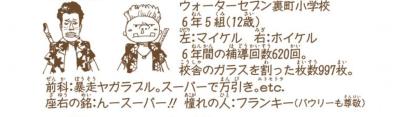 ウォーターセブン裏町小学校
6年5組(12歳)
左:マイケル 右:ホイケル
6年間の補導回数620回。
校舎のガラスを割った枚数997枚。
前科:暴走ヤガラブル。スーパーで万引き。etc.
座右の銘:んースーパー!! 憧れの人:フランキー(パウリーも尊敬)